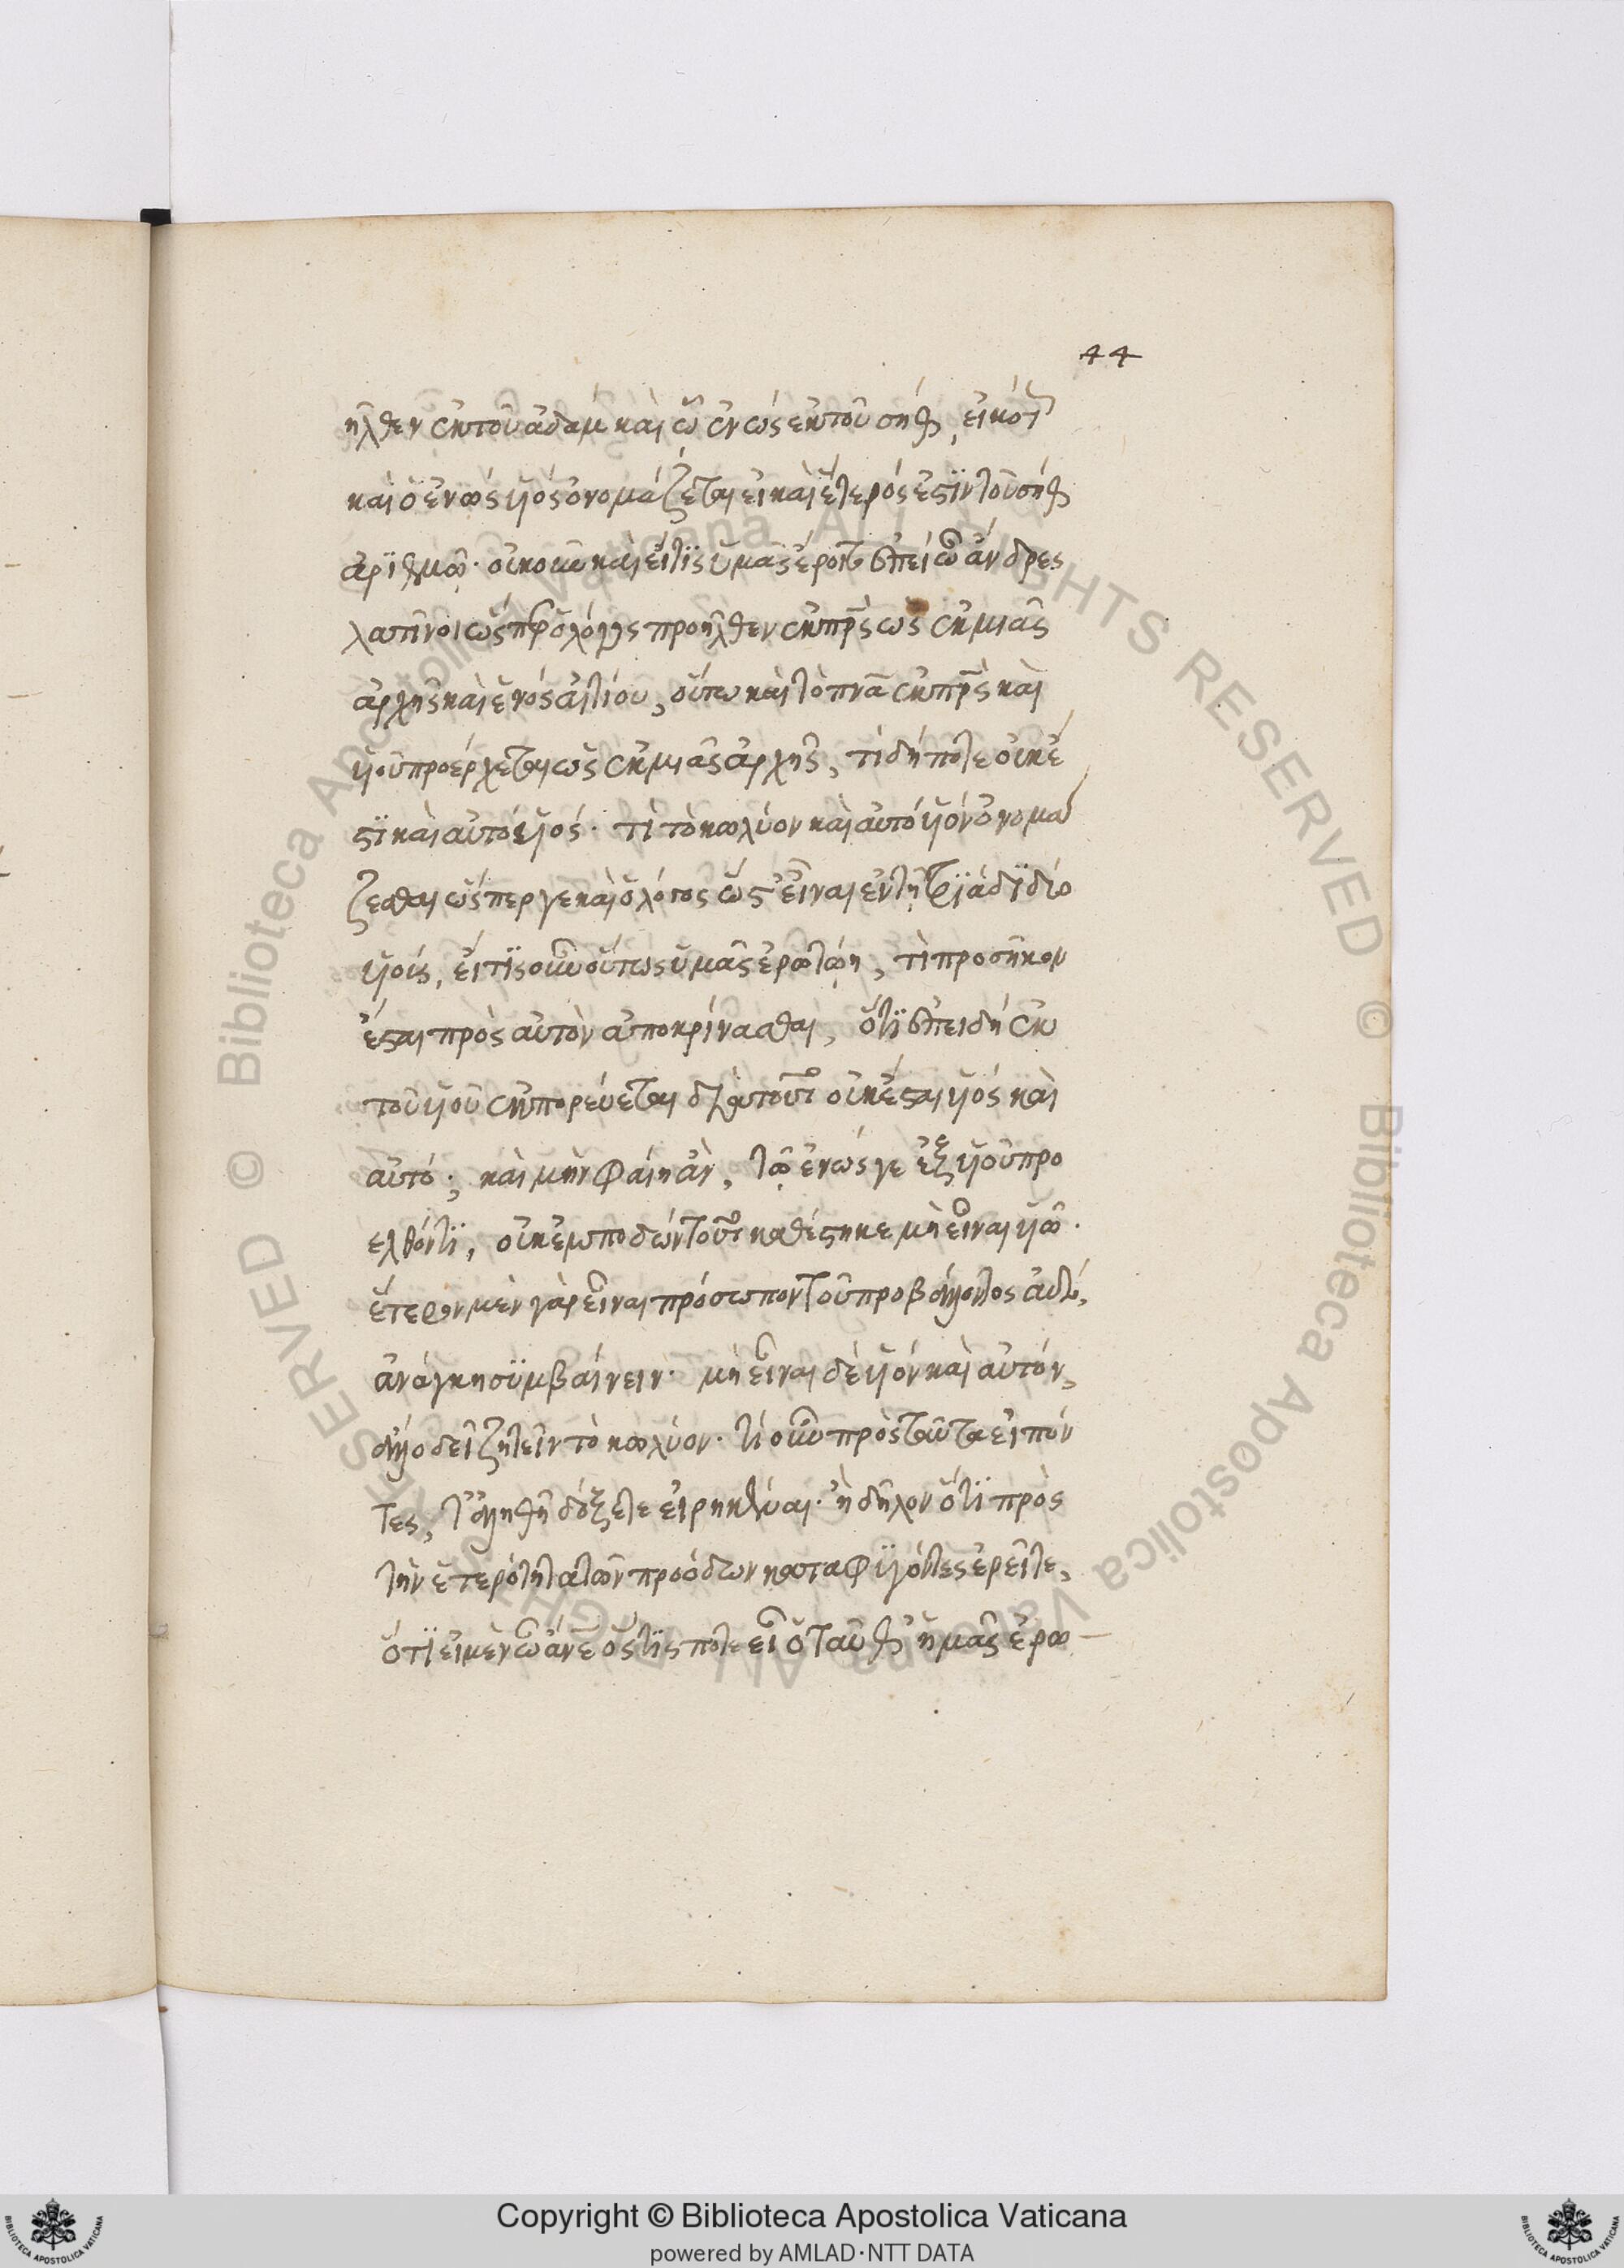 44
ῆλθεν ἐκ τοῦ ἀδὰμ καὶ ὁ ἐνὼς ἐκ τοῦ σὴθ, εἰκότ
καὶ ὁ ἐνὼς υἱὸς ὀνομάζεται εἰ καὶ ἕτερός ἐστὶν τοῦ σὴθ
ἀριθμῷ· οὐκοῦν καὶ εἴ τις ὑμᾶς ἔροιτο ἐπεὶ ὦ ἄνδρες
λατῖνοι ὥσπερ ὁ λόγος προῆλθεν ἐκ πρς ὡς ἐκ μιᾶς
ἀρχῆς καὶ ἑνὸς αἰτίου, οὕτω καὶ τὸ πνα ἐκ πρς καὶ
υἱοῦ προέρχεται ὡς ἐκ μιᾶς ἀρχῆς, τί δή ποτε οὐκ ἔ
στι καὶ αὐτὸ υἱός· τί τὸ κωλύον καὶ αὐτὸ υἱὸν ὀνομά
ζεσθαι ὥσπερ γε καὶ ὁ λόγος ὥστ' εἶναι ἐν τῇ τριάδι δύο
υἱούς, εἴ τις οὖν οὕτως ὑμᾶς ἐρωτώη, τί προσῆκον
ἔσται πρὸς αὐτὸν ἀποκρίνασθαι, ὅτι ἐπειδὴ ἐκ
τοῦ υἱοῦ ἐκπορεύεται διὰ τοῦτο οὐκ ἔσται υἱὸς καὶ
αὐτό; καὶ μὴν φαίη ἂν, τῷ ἐνώς γε ἐξ υἱοῦ προ
ελθόντι, οὐκ ἐμποδὼν τοῦτο καθέστηκε μὴ εἶναι υἱῷ·
ἕτερον μὲν γὰρ εἶναι πρόσωπον τοῦ προβάλλοντος αὐτό,
ἀνάγκη συμβαίνειν· μὴ εἶναι δὲ υἱὸν καὶ αὐτόν,
ἄλλο δεῖ ζητεῖν τὸ κωλύον· τί οὖν πρὸς ταῦτα εἰπόν
τες, τἀληθῆ δόξετε εἰρηκέναι· ἢ δῆλον ὅτι πρὸς
τὴν ἑτερότητα τῶν προόδων καταφυγόντες ἐρεῖτε,
ὅτι εἰ μὲν ὦ ἄνε ὅστις ποτε εἶ ὁ ταῦθ' ἡμᾶς ἐρω
Copyright © Biblioteca Apostolica Vaticana
powered by AMLAD·NTT DATA